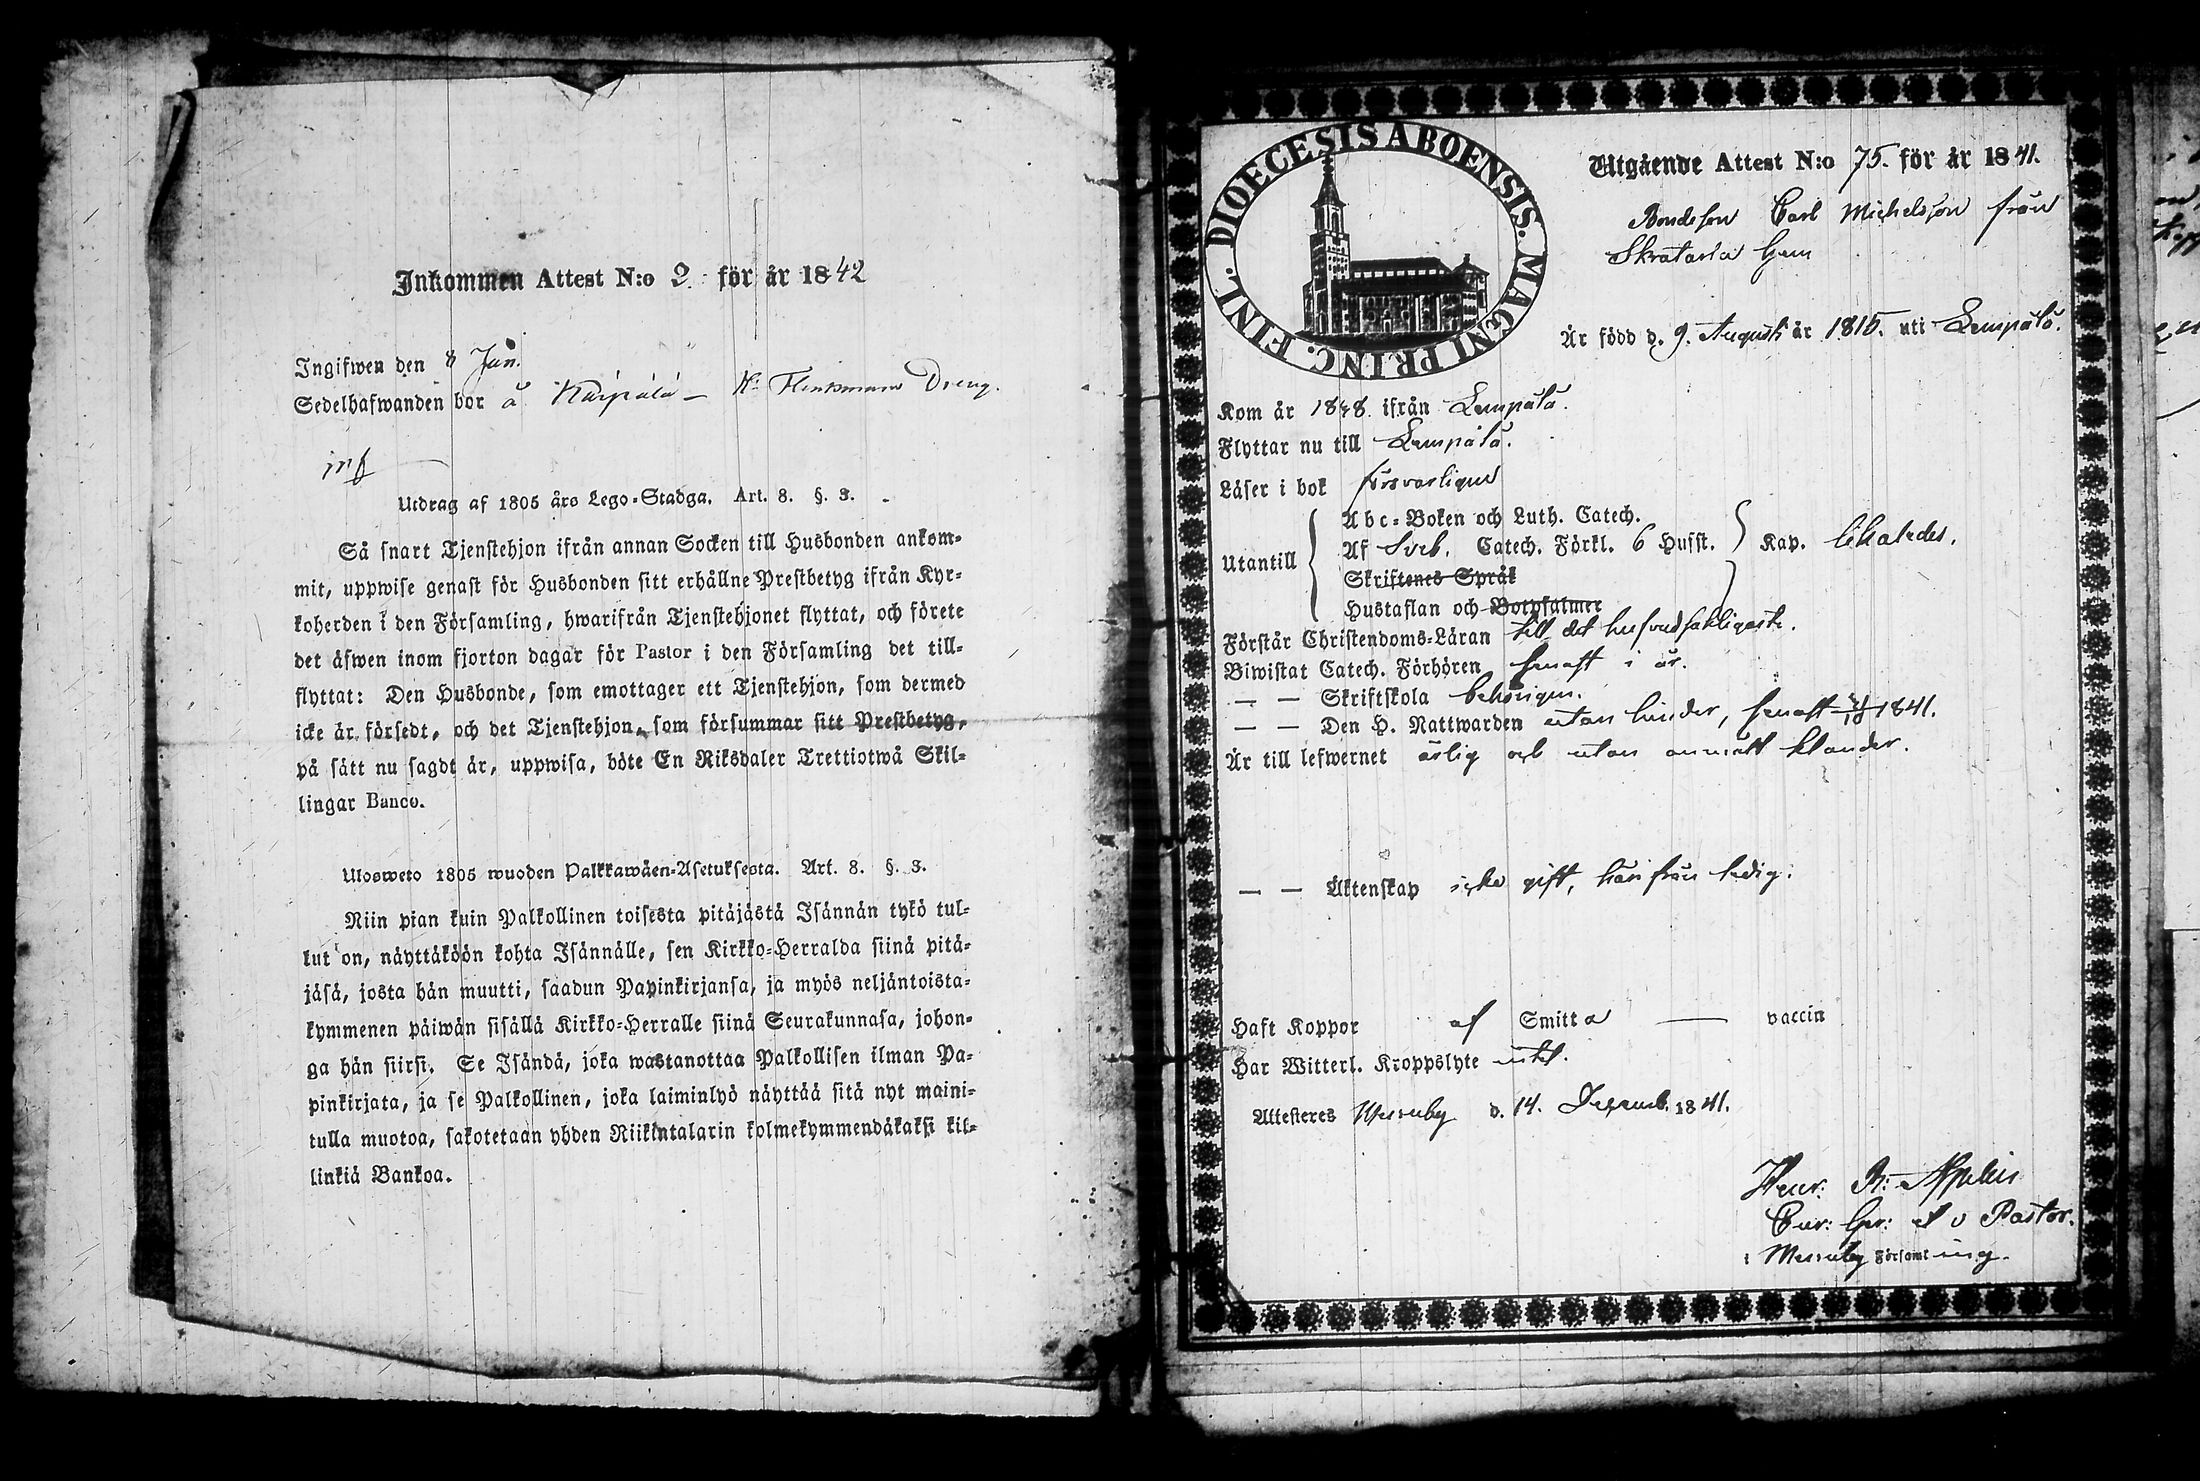 Inkommen Attest N:o 2. för år 1842
Ingifwen den 8 Jan.
Sedelhafwanden bor å
Utdrag af 1805 års Lego-Stadga. Art. 8. §. 3.
Så snart Tjenstehjon ifrån annan Socken till Husbonden ankom-
mit, uppwise genast för Husbonden sitt erhållne Prestbetyg ifrån Kyr-
koherden i den Församling, hwarifrån Tjenstehjonet flyttat, och förete
det äfwen inom fjorton dagar för Pastor i den Församling det till-
flyttat: Den Husbonde, som emottager ett Tjenstehjon, som dermed
icke är försedt, och det Tjenstehjon, som försummar sitt Prestbetyg,
på sätt nu sagdt är, uppwisa, böte En Riksdaler Trettiotwå Skil-
lingar Banco.
Ulosweto 1805 wuoden Palkkawäen-Asetuksesta. Art. 8. §. 3.
Niin pian kuin Palkollinen toisesta pitäjästä Isännän tykö tul-
lut on, näyttäköön kohta Isännälle, sen Kirkko-Herralda siinä pitä-
jäsä, josta hän muutti, saadun Papinkirjansa, ja myös neljäntoista-
kymmenen päiwän sisällä Kirkko-Herralle siinä Seurakunnasa, johon-
ga hän siirsi. Se Isändä, joka wastanottaa Palkollisen ilman Pa-
pinkirjata, ja se Palkollinen, joka laiminlyö näyttää sitä nyt maini-
tulla muotoa, sakotetaan yhden Riikintalarin kolmekymmendäkaksi kil-
linkiä Bankoa.
DIOECESIS ABOENSIS. MAGNI PRINC. FINL.
Utgående Attest N:o 75. för år 1841.
Bondeson Carl Michelsson från
Är född d. 9. Augusti år 1815. uti Lempälä.
Kom år ifrån Lempälä.
Flyttar nu till Lempälä.
Läser i bok försvarligen
Utantill
Abc-Boken och Luth. Catech.
Af Sveb. Catech. Förkl. 6 Husst. Kap. likaledes.
Skriftenes Språk
Hustaflan och Botpsalmer
Förstår Christendoms-Läran till det hufvudsakligaste.
Biwistat Catech. Förhören senast i år.
— — Skriftskola behörigen.
— — Den H. Nattwarden utan hinder, senast 1841.
Är till lefwernet ärlig och utan anmält klander.
— — Äktenskap icke gift, härifrån ledig.
Haft Koppor af Smitta — vaccin
Har Witterl. Kroppslyte intet.
Attesteres Messuby d. 14. Decemb. 1841.
Henr. Appelius
v Pastor.
i Messuby Församling.